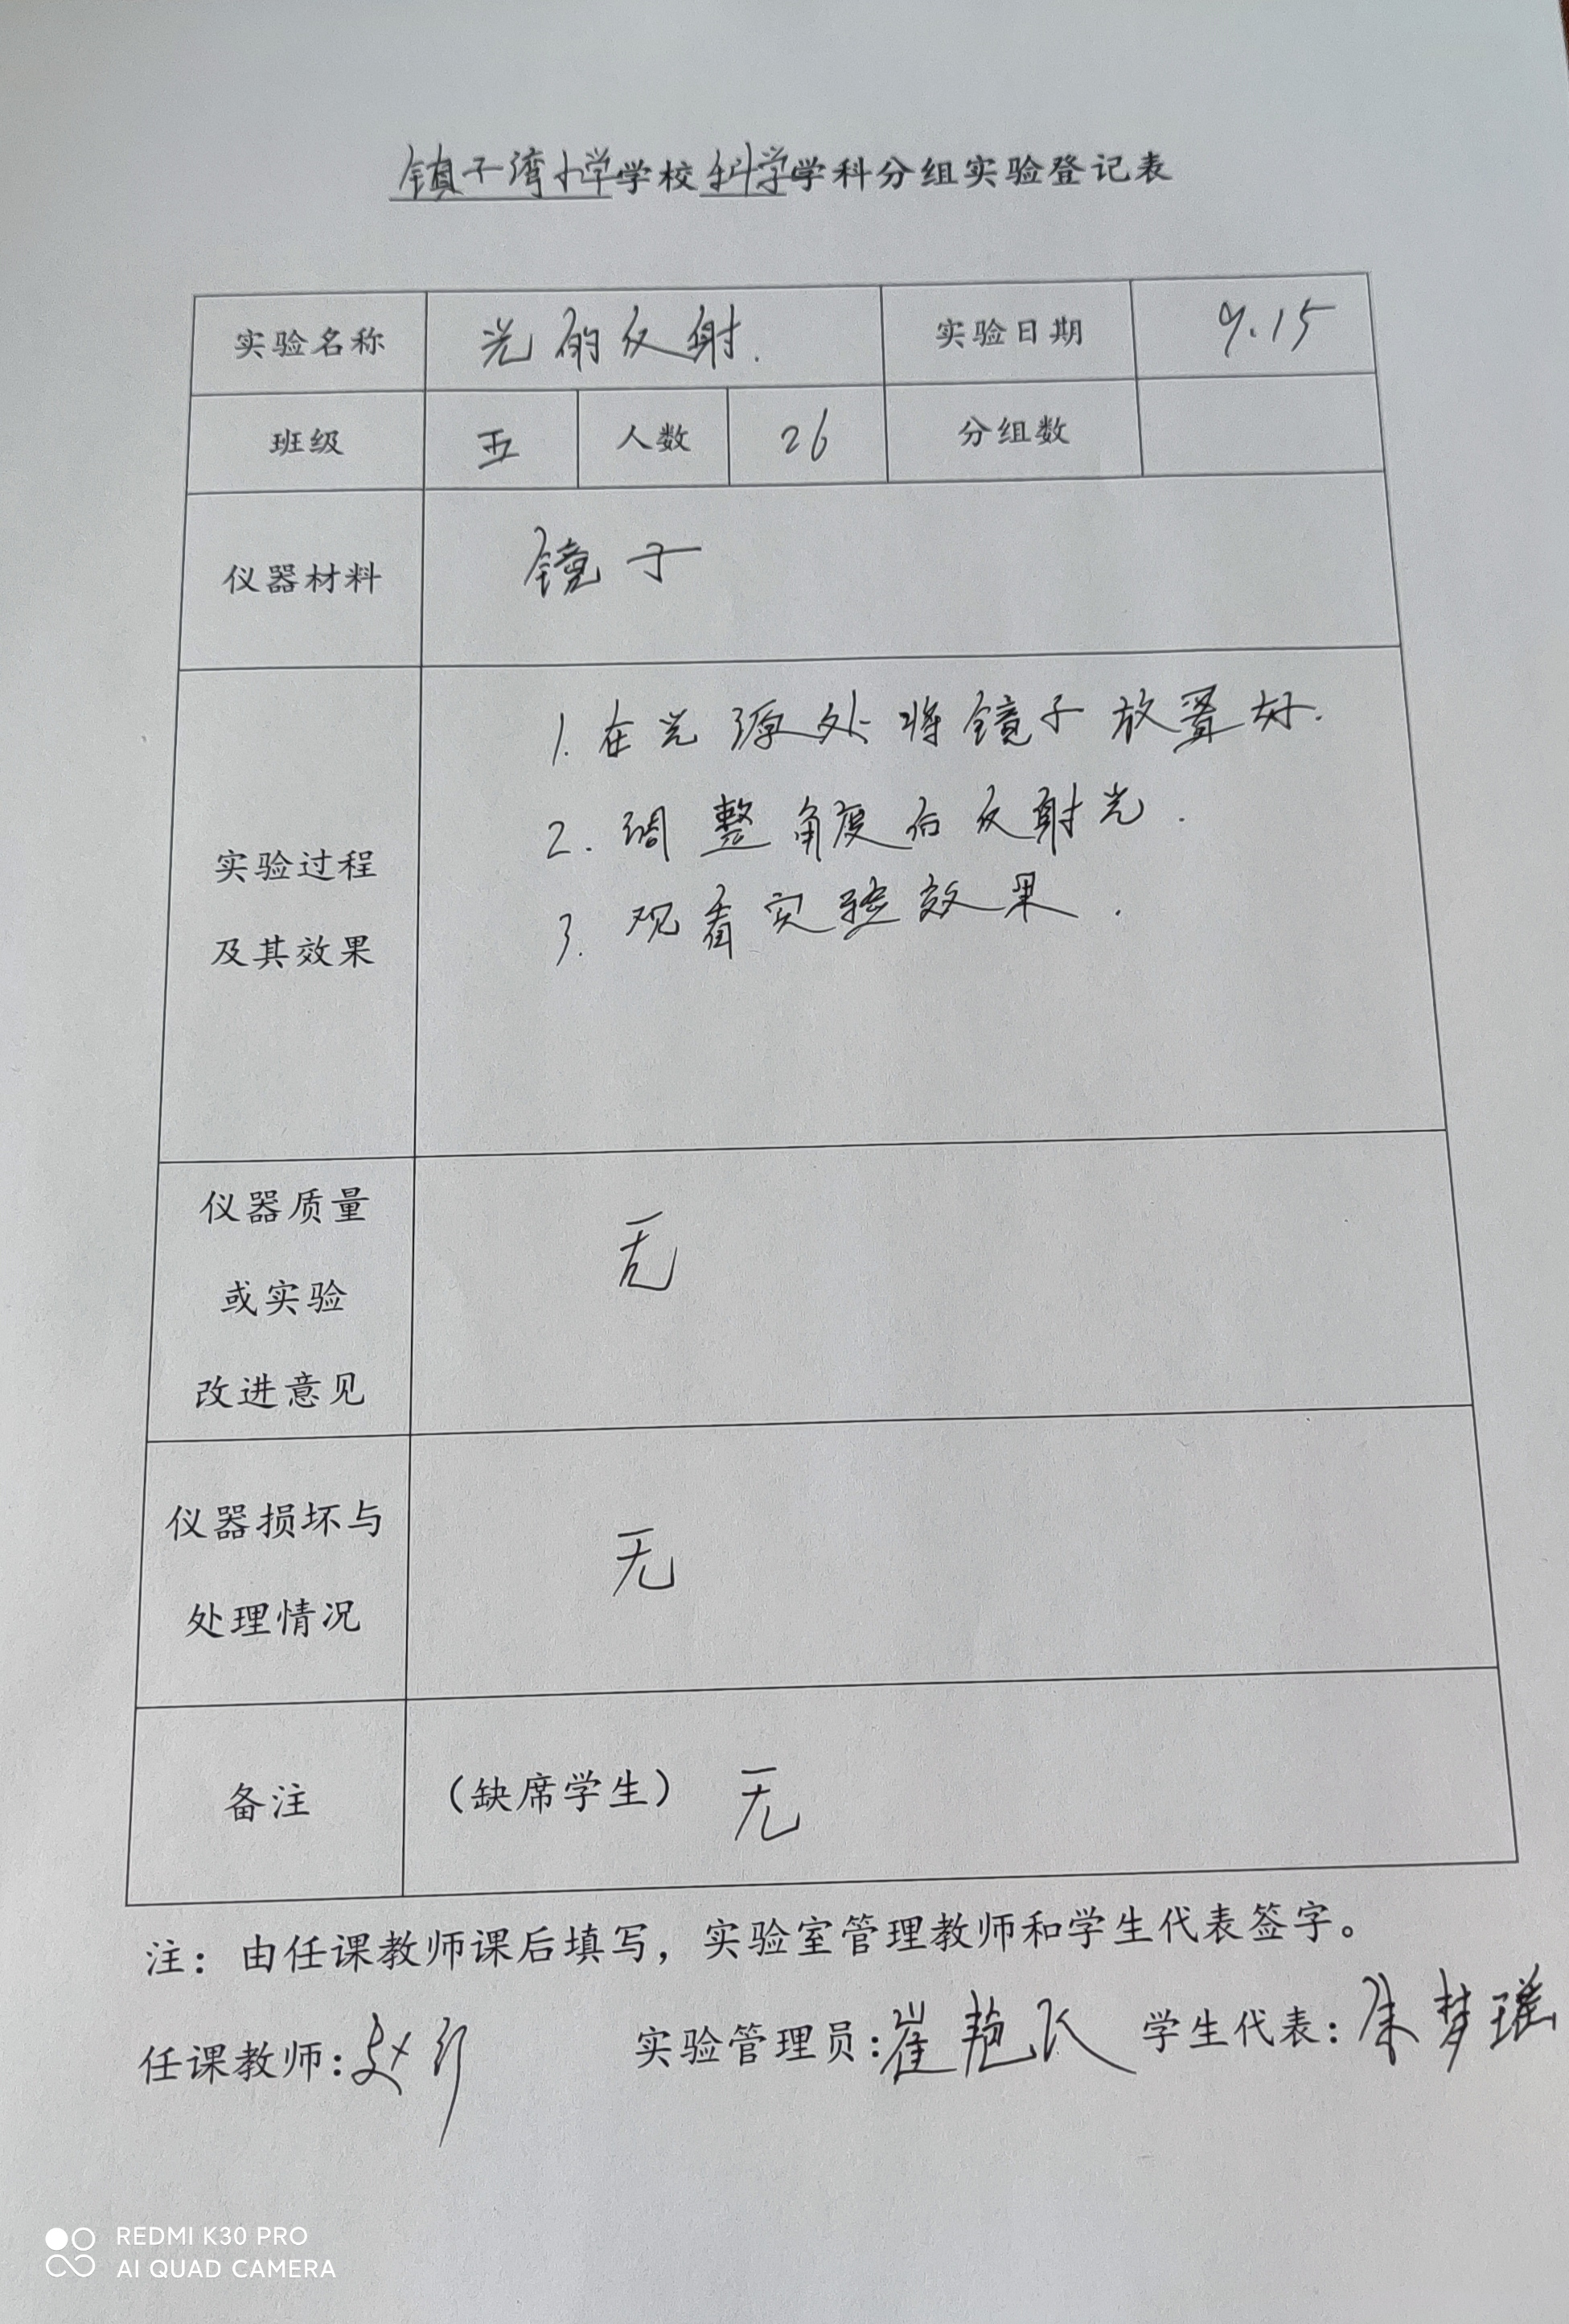 镇子湾小学学校科学学科分组实验登记表
实验名称 光的反射. 实验日期 9.15
班级 五 人数 26 分组数
仪器材料 镜子
实验过程
及其效果
1. 在光源处将镜子放置好.
2. 调整角度后反射光.
3. 观看实验效果.
仪器质量
或实验
改进意见
无
仪器损坏与
处理情况
无
备注 (缺席学生) 无
注：由任课教师课后填写，实验室管理教师和学生代表签字。
任课教师:赵 实验管理员:崔艳 学生代表:朱梦瑶
REDMI K30 PRO
AI QUAD CAMERA